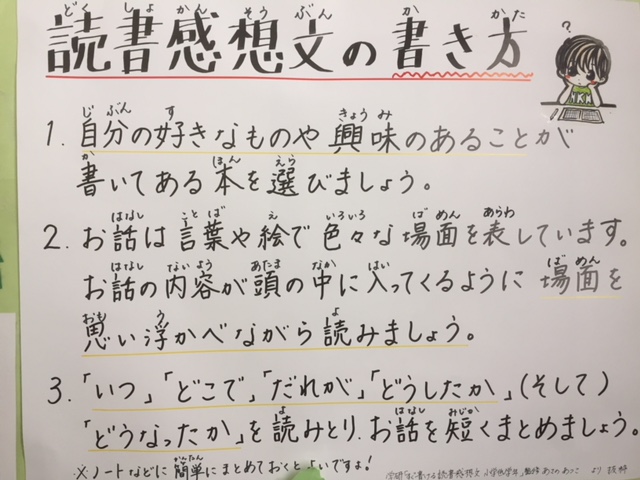 読書感想文の書き方
?
1. 自分の好きなものや興味のあることが
書いてある本を選びましょう。
2. お話は言葉や絵で色々な場面を表しています。
お話の内容が頭の中に入ってくるように場面を
思い浮かべながら読みましょう。
3.「いつ」「どこで」「だれが」「どうしたか」(そして)
「どうなったか」を読みとり、お話を短くまとめましょう。
※ノートなどに簡単にまとめておくとよいですよ!
より 抜粋